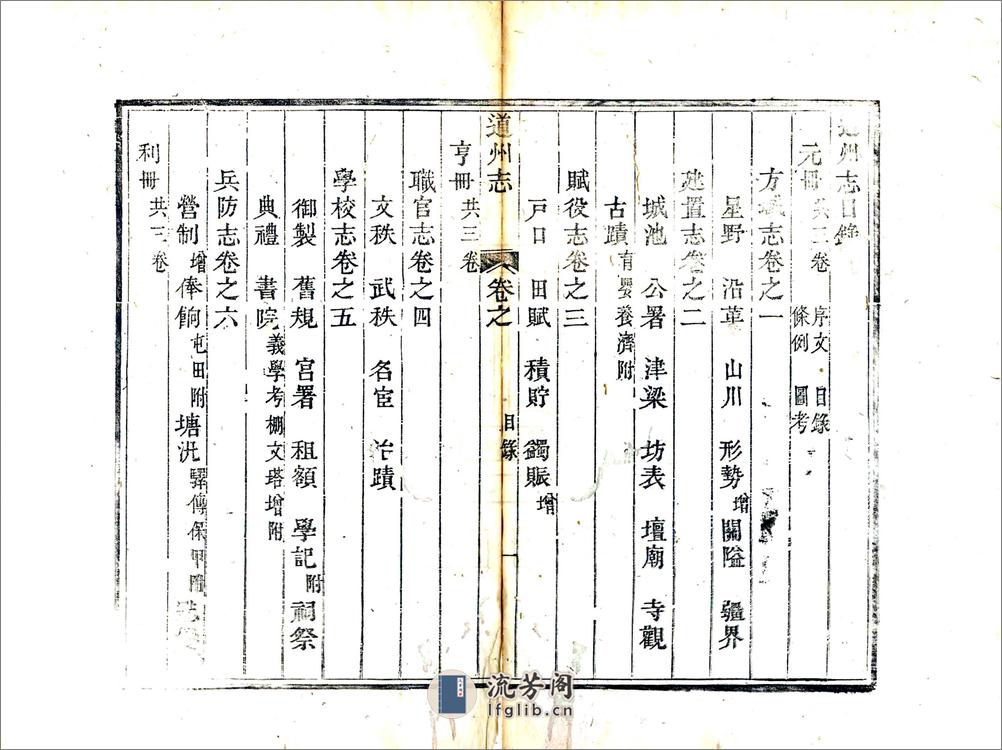 道州志目錄
元冊 共三卷 序文 目錄 條例 圖考
方域志卷之一
星野 沿革 山川 形勢 增 關隘 疆界
建置志卷之二
城池 公署 津梁 坊表 壇廟 寺觀
古蹟 育嬰養濟附
賦役志卷之三
戶口 田賦 積貯 蠲賑 增
道州志 卷之 目錄 一
亨冊 共三卷
職官志卷之四
文秩 武秩 名宦 治蹟
學校志卷之五
御製 舊規 宮署 租額 學記 附 祠祭
典禮 書院 義學考棚文塔增附
兵防志卷之六
營制 增 俸餉 屯田附 塘汛 驛傳保甲附
利冊 共三卷
流芳阁
lfglib.cn